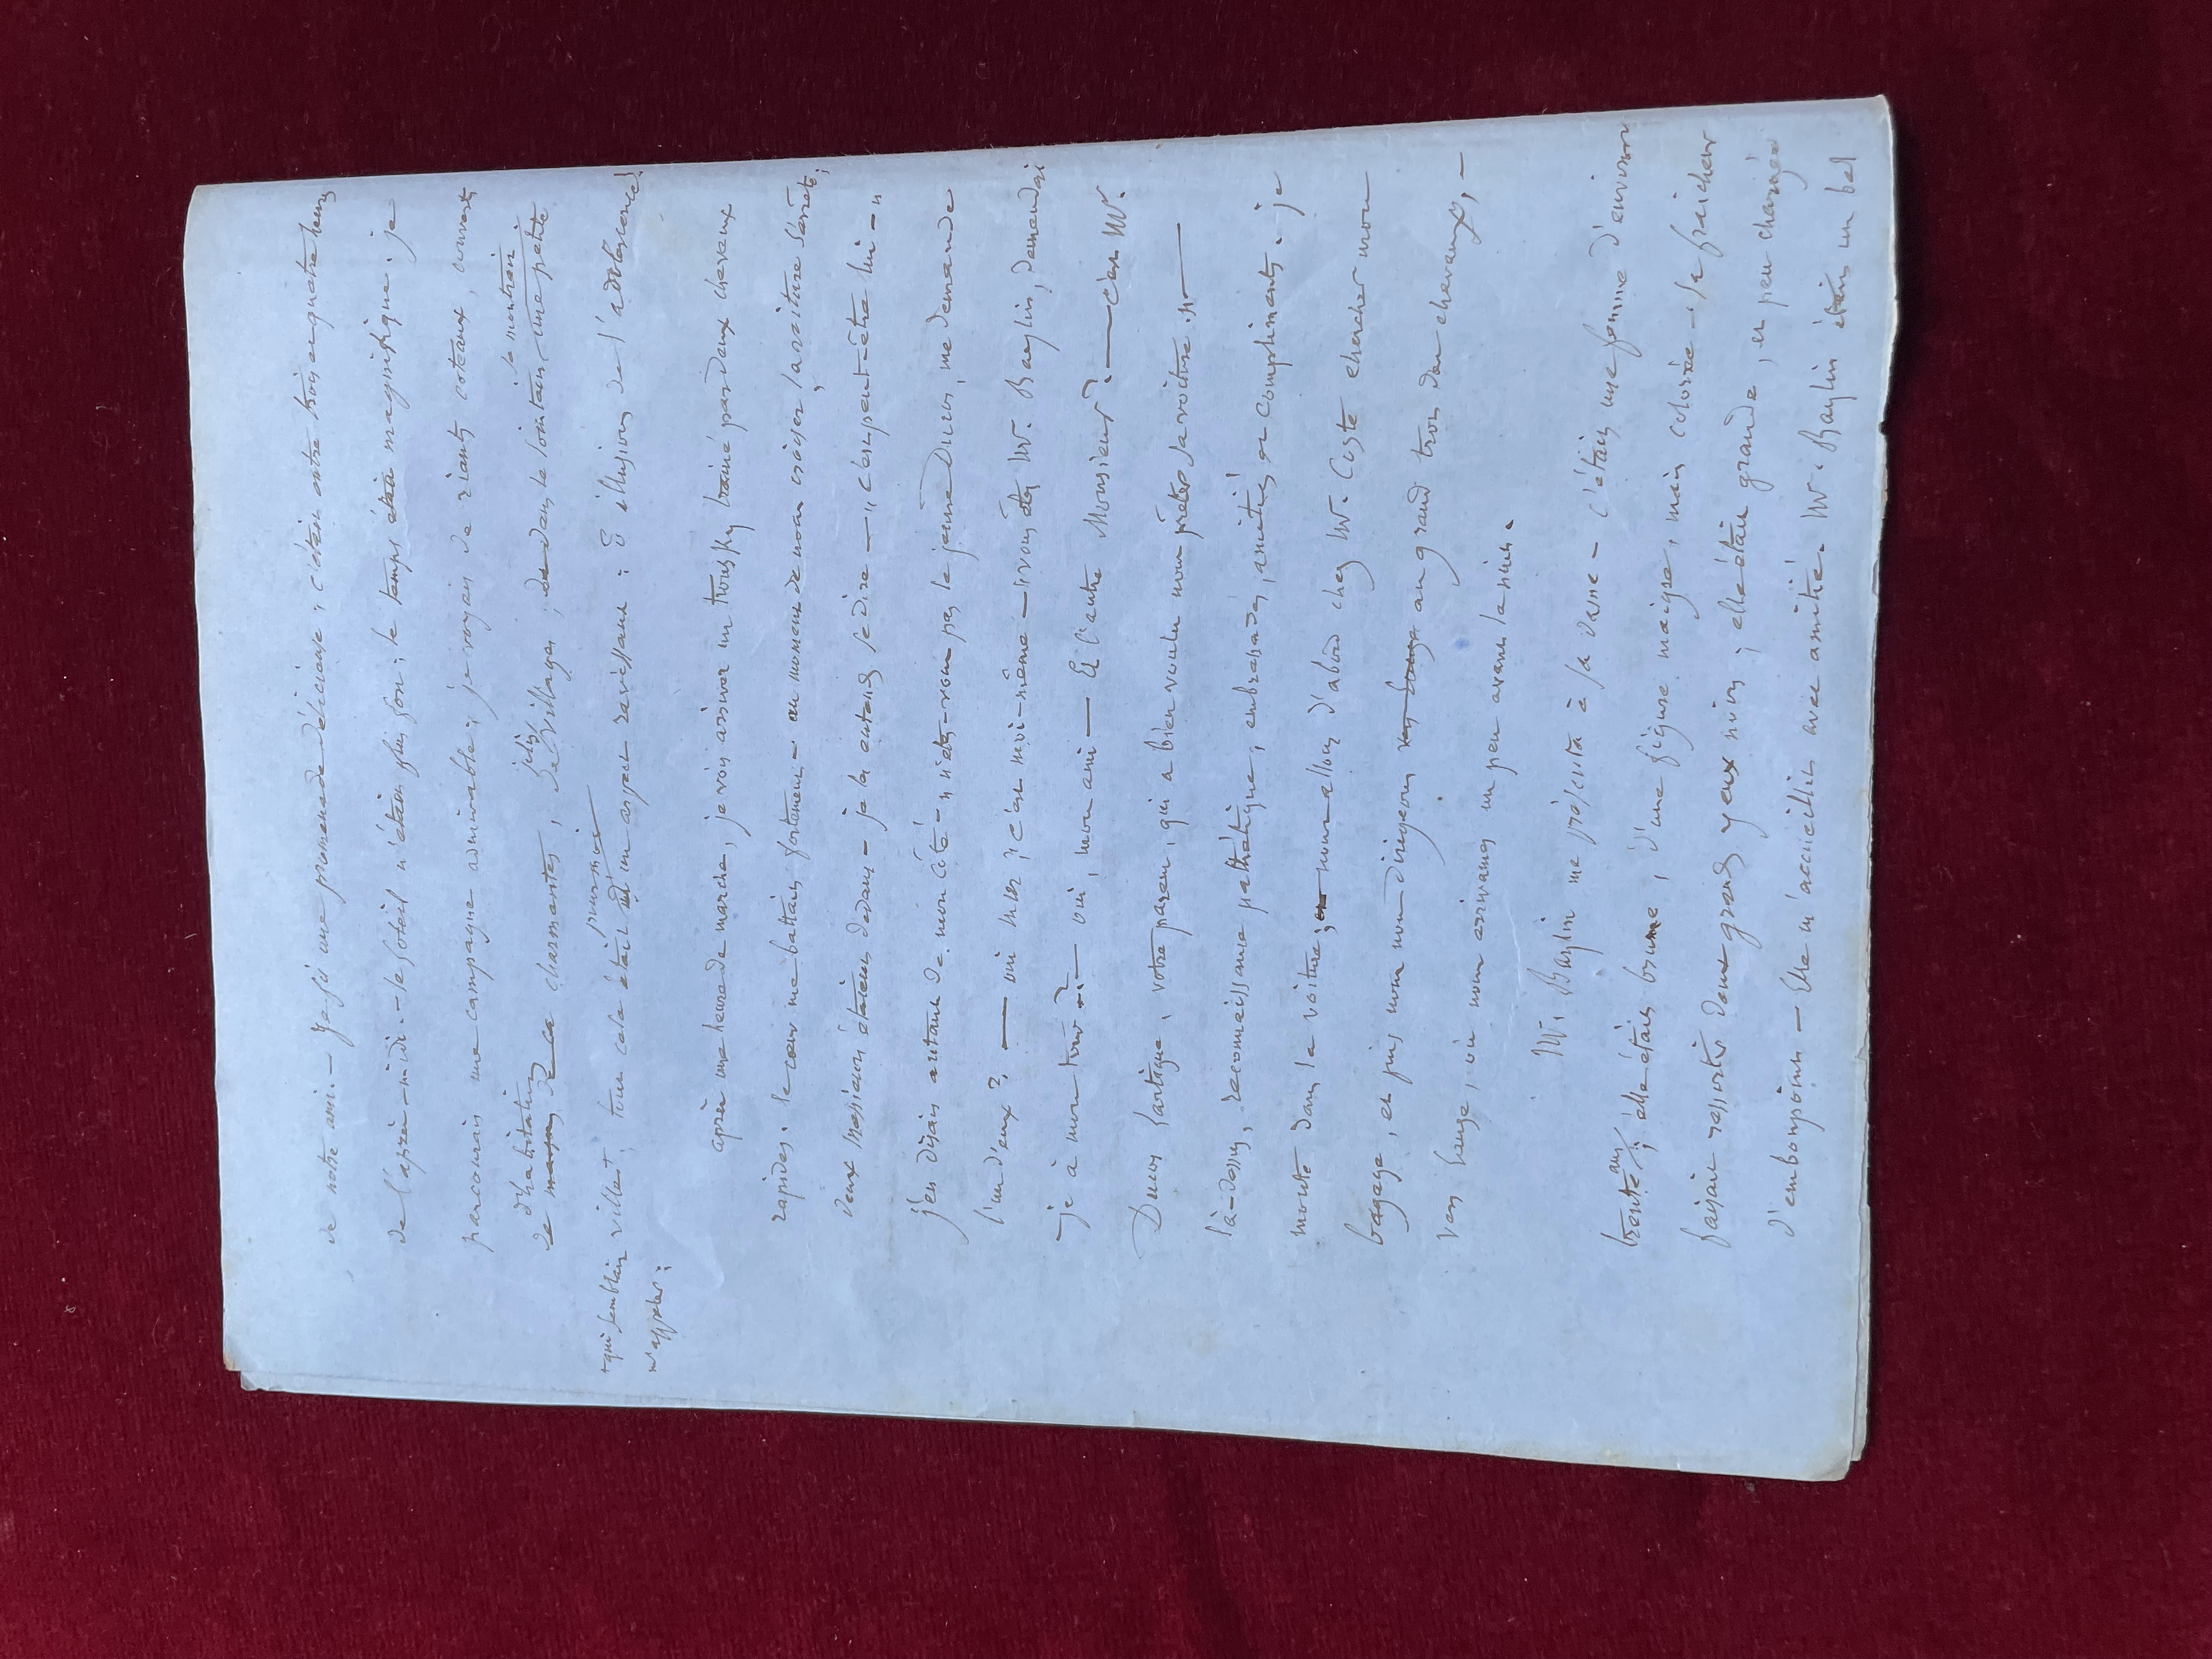 de notre ami. — Je fis une promenade délicieuse; c'était entre trois ou quatre heures
de l'après-midi. — le soleil n'était plus fort; le temps était magnifique. je
parcourais une campagne admirable; je voyais de riants coteaux, couverts
d'habitations
de maisons de ca charmantes, de jolis villages; de dans le lointain, une petite
je montrai
+qui semblait
m'appeler;
ville+, tout cela était d'un aspect ravissant: O illusions de l'adolescence!
après une heure de marche, je vois arriver un trousky trainé par deux chevaux
rapides. le cœur me battait fortement — au moment de nous croiser, la voiture s'arrête;
deux messieurs étaient dedans — je les entends se dire — "c'est peut-être lui — "
j'en disais autant de mon côté — "n'êtes-vous pas le jeune Ducos, me demande
l'un d'eux? — oui mr; c'est moi-même — vous êtes Mr. Baylin, demandai
-je à mon tour? — oui, mon ami — Et l'autre Monsieur? — c'est Mr.
Ducos Lartigue, votre parent, qui a bien voulu nous prêter sa voiture." —
là-dessus, reconnaissance pathétique, embrassades, amitiés et compliments. je
monte dans la voiture; et nous allons d'abord chez Mr. Coste chercher mon
bagage, et puis nous nous dirigeons au grand trot des chevaux, —
vers , où nous arrivames un peu avant la nuit.
Mr. Baylin me présenta à sa dame — c'était une femme d'environ
trente ans; elle était brune, d'une figure maigre, mais colorée — sa fraicheur
faisait ressortir deux grands yeux noirs; elle était grande, et peu chargée
d'embonpoint — Elle m'accueillit avec amitié. Mr. Baylin était un bel